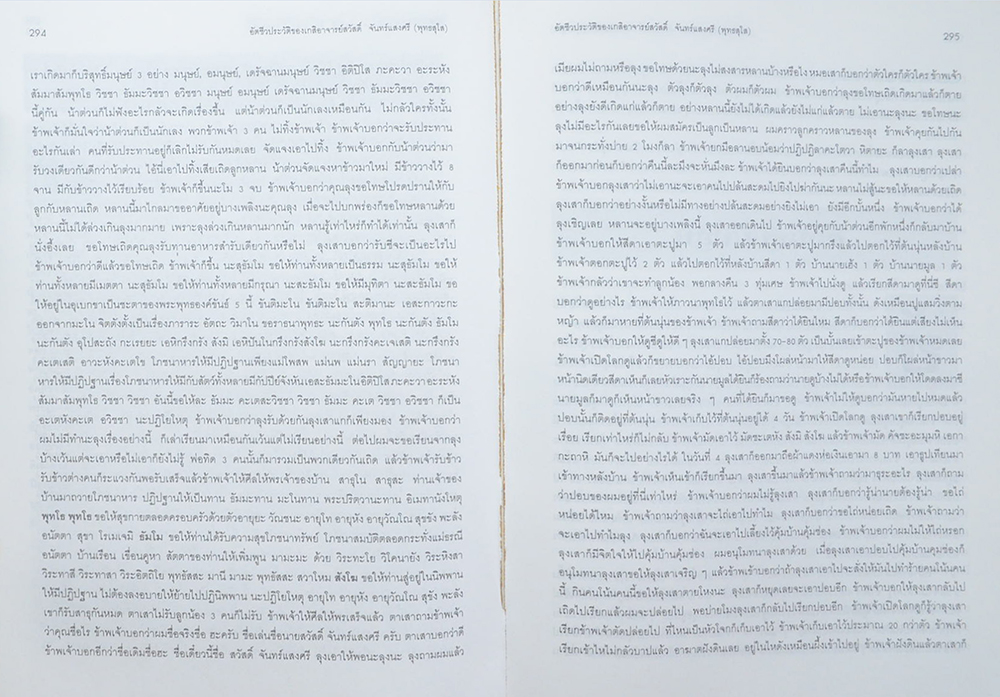 294
อัตชีวประวัติของเกสิอาจารย์สวัสดิ์ จันทร์แสงศรี (พุทธสุโส)
เราเกิดมาก็บริสุทธิ์มนุษย์ 3 อย่าง มนุษย์, อมนุษย์, เดรัจฉานมนุษย์ วิชชา อิติปิโส ภะคะวา อะระหัง
สัมมาสัมพุทโธ วิชชา ธัมมะวิชชา อวิชชา มนุษย์ อมนุษย์ เดรัจฉานมนุษย์ วิชชา ธัมมะวิชชา อวิชชา
นี้คู่กัน น้าต่วนก็ไม่ฟังอะไรกลัวจะเกิดเรื่องขึ้น แต่น้าต่วนก็เป็นนักเลงเหมือนกัน ไม่กลัวใครทั้งนั้น
ข้าพเจ้าก็มันใจว่าน้าต่วนก็เป็นนักเลง พวกข้าพเจ้า 3 คน ไม่ทิ้งข้าพเจ้า ข้าพเจ้าบอกว่าจะรับประทาน
อะไรกันเล่า คนที่รับประทานอยู่ก็เลิกไม่รับกันหมดเลย จัดแจงเอาไปทิ้ง ข้าพเจ้าบอกกับน้าต่วนว่ามา
รับวงเดียวกันดีกว่าน้าต่วน ไอ้นี่เอาไปทิ้งเสียเถิดลูกหลาน น้าต่วนจัดแจงหาข้าวมาใหม่ มีข้าววางไว้ 8
จาน มีกับข้าววางไว้เรียบร้อย ข้าพเจ้าก็ขึ้นนะโม 3 จบ ข้าพเจ้าบอกว่าคุณลุงขอโทษโปรดปรานให้กับ
ลูกกับหลานเถิด หลานนี้มาไกลมาขออาศัยอยู่บางเพลิงนะคุณลุง เมื่อจะไปบกพร่องก็ขอโทษหลานด้วย
หลานนี้ไม่ได้ล่วงเกินลุงมากมาย เพราะลุงล่วงเกินหลานมากนัก หลานรู้เท่าไหร่ก็ทำได้เท่านั้น ลุงเสาก็
นั่งอึ้งเลย ขอโทษเถิดคุณลุงรับทานอาหารสำรับเดียวกันหรือไม่ ลุงเสาบอกว่ารับซิจะเป็นอะไรไป
ข้าพเจ้าบอกว่าดีแล้วขอโทษเถิด ข้าพเจ้าก็ขึ้น นะสุธัมโม ขอให้ท่านทั้งหลายเป็นธรรม นะสุธัมโม ขอให้
ท่านทั้งหลายมีเมตตา นะสุธัมโม ขอให้ท่านทั้งหลายมีกรุณา นะสะธัมโม ขอให้มีมุทิตา นะสะธัมโม ขอ
ให้อยู่ในอุเบกขาเป็นชะตาของพระพุทธองค์ขันธ์ 5 นี้ ขันติมะโน ขันติมะโน สะติมานะ เอสะกาวะกะ
ออกจากมะโน จิตตังตั้งเป็นเรื่องภาราระ อัตถะ วิมาโน ขอราธนาพุทธะ นะกันตัง พุทโธ นะกันตัง ธัมโม
นะกันตัง อุโปสะถัง กะเรยยะ เอหิกรึงกรัง สังมิ เอหิปันโนกรึงกรังสังโฆ นะกรึงกรังคะเจเสติ นะกรึงกรัง
คะเตเสติ อาวะหังคะเตโข โภชนาหารให้มีปฏิปฐานเพียงแม่โพสพ แม่นพ แม่นรา สัญญายะ โภชนา
หารให้มีปฏิปฐานเรื่องโภชนาหารให้มีกับสัตว์ทั้งหลายมีกับปีย์จังหันเอสะธัมมะในอิติปิโสภะคะวาอะระหัง
สัมมาสัมพุทโธ วิชชา วิชชา อันนี้ขอให้ละ ธัมมะ คะเตสะวิชชา วิชชา ธัมมะ คะเต วิชชา อวิชชา ก็เป็น
อะเตหังคะเต อวิชชา นะปฏิโยไหตุ ข้าพเจ้าบอกว่าลุงรับด้วยกันลุงเสาแกก็เพียงมอง ข้าพเจ้าบอกว่า
ผมไม่มีทำนะลุงเรื่องอย่างนี้ ก็เล่าเรียนมาเหมือนกันเว้นแต่ไม่เรียนอย่างนี้ ต่อไปผมจะขอเรียนจากลุง
บ้างเว้นแต่จะเอาหรือไม่เอาก็ยังไม่รู้ พ่อทิด 3 คนนั้นก็มารวมเป็นพวกเดียวกันเถิด แล้วข้าพเจ้ารับข้าว
รับข้าวต่างคนก็ระแวงกันพอรับเสร็จแล้วข้าพเจ้าให้ศีลให้พรเจ้าของบ้าน สาธุโน สาธุสะ ท่านเจ้าของ
บ้านมาถวายโภชนาหาร ปฏิปฐานให้เป็นทาน ธัมมะทาน มะในทาน พระปริตวานะทาน อิเมทานังโหตุ
พุทโธ พุทโธ ขอให้สุขกายตลอดครอบครัวด้วยตัวอายุยะ วัณชนะ อายุโท อายุหัง อายุวัณโณ สุขขัง พะลัง
อนัตตา สุขา โรเมเจมิ ธัมโม ขอให้ท่านได้รับความสุขโภชนาทรัพย์ โภชนาสมบัติตลอดกระทั่งแม่ธรณี
อนัตตา บ้านเรือน เชื่อนคูหา สัตตาของท่านให้เพิ่มพูน มามะมะ ด้วย วิระทะโย วิไคนายัง วิระหิงสา
วิระทาสี วิระทาสา วิระอิตถิโย พุทธัสสะ มานี มามะ พุทธัสสะ สวาโหม สังโฆ ขอให้ท่านสู่อยู่ในนิพพาน
ให้มีปฏิปฐาน ไม่ต้องลงอบายให้ย้ายไปปฏินิพพาน นะปฏิโยโหตุ อายุโท อายุหัง อายุวัณโณ สุขัง พะลัง
เขาก็รับสาธุกันหมด ตาเสาไม่รับลูกน้อง 3 คนก็ไม่รับ ข้าพเจ้าให้ศีลให้พรเสร็จแล้ว ตาเสาถามข้าพเจ้า
ว่าคุณชื่อไร ข้าพเจ้าบอกว่าผมชื่อจริงชื่อ ฮะครับ ชื่อเล่นชื่อนายสวัสดิ์ จันทร์แสงศรี ครับ ตาเสาบอกว่าดี
ข้าพเจ้าบอกอีกว่าชื่อเดิมชื่อฮะ ชื่อเดี๋ยวนี้ชื่อ สวัสดิ์ จันทร์แสงศรี ลุงเอาให้พอนะลุงนะ ลุงถามผมแล้ว
อัตชีวประวัติของเกสิอาจารย์สวัสดิ์ จันทร์แสงศรี (พุทธสุโส)
295
เมียผมไม่ถามหรือลุง ขอโทษด้วยนะลุงไม่สงสารหลานบ้างหรือไง หมอเสาก็บอกว่าตัวใครก็ตัวใคร ข้าพเจ้า
บอกว่าดีเหมือนกันนะลุง ตัวลุงก็ตัวลุง ตัวผมก็ตัวผม ข้าพเจ้าบอกว่าลุงขอโทษเถิดเกิดมาแล้วก็ตาย
อย่างลุงยังดีเกิดแก่แล้วก็ตาย อย่างหลานนี้ยังไม่ได้เกิดแล้วยังไม่แก่แล้วตาย ไม่เอานะลุงนะ ขอโทษนะ
ลุงไม่มีอะไรกันเลยขอให้ผมสมัครเป็นลูกเป็นหลาน ผมคราวลูกคราวหลานของลุง ข้าพเจ้าคุยกันไปกัน
มาจนกระทั่งบ่าย 2 โมงก็ลา ข้าพเจ้ายกมือลานอบน้อมว่าปฏิปฏิลาคะโตวา หิตายะ ก็ลาลุงเสา ลุงเสา
ก็ออกมาก่อนก็บอกว่าคืนนี้ละมึงจะหั่นมึงละ ข้าพเจ้าได้ยินบอกว่าลุงเสาคืนนี้ทำไม ลุงเสาบอกว่าเปล่า
ข้าพเจ้าบอกลุงเสาว่าไม่เอานะจะเอาคนไปปล้นสะดมไปยิงไปฆ่ากันนะ หลานไม่สู้นะขอให้หลานด้วยเถิด
ลุงเสาก็บอกว่าอย่างงั้นหรือไม่มีทางอย่างปล้นสะดมอย่างยิงไม่เอา ยังมีอีกบั้นหนึ่ง ข้าพเจ้าก็บอกว่าได้
ลุงเชิญเลย หลานจะอยู่บางเพลิงนี้ ลุงเสาออกเดินไป ข้าพเจ้าอยู่คุยกับน้าต่วนอีกพักหนึ่งก็กลับมาบ้าน
ข้าพเจ้าบอกให้สีดาเอาตะปูมา 5 ตัว แล้วข้าพเจ้าเอาตะปูมากรึงแล้วไปตอกไว้ที่ต้นนุ่นหลังบ้าน
ข้าพเจ้าตอกตะปูไว้ 2 ตัว แล้วไปตอกไว้ที่หลังบ้านสีดา 1 ตัว บ้านนายเฮ้ง 1 ตัว บ้านนายมูล 1 ตัว
ข้าพเจ้ากลัวว่าเขาจะทำลูกน้อง พอกลางคืน 3 ทุ่มเศษ ข้าพเจ้าไปนั่งดู แล้วเรียกสีดามาดูที่นี่ซิ สีดา
บอกว่าดูอย่างไร ข้าพเจ้าให้ภาวนาพุทโธไว้ แล้วตาเสาแกปล่อยมามีปอบทั้งนั้น ดังเหมือนปูแสมวิ่งตาม
หญ้า แล้วก็มาหายที่ต้นนุ่นของข้าพเจ้า ข้าพเจ้าถามสีดาว่าได้ยินไหม สีดาก็บอกว่าได้ยินแต่เสียงไม่เห็น
อะไร ข้าพเจ้าบอกให้ดูซีดูให้ดี ๆ ลุงเสาแกปล่อยมาตั้ง 70-80 ตัว เป็นนั้นเลยเข้าตะปูของข้าพเจ้าหมดเลย
ข้าพเจ้าเปิดไลกดูแล้วก็ขยายบอกว่าไอ้ปอบ ไอ้ปอบมึงโผล่หน้ามาให้สีดาดูหน่อย ปอบก็โผล่หน้าขาวมา
หน้านิดเดียวสีดาเห็นก็เลยหัวเราะกันนายมูลได้ยินก็ร้องถามว่านายดูบ้างไม่ได้หรือข้าพเจ้าบอกให้โดดลงมาซี
นายมูลก็มาดูก็เห็นหน้าขาวเลยจริง ๆ คนที่ได้ยินก็มาขอดู ข้าพเจ้าไม่ให้ดูบอกว่ามันหายไปหมดแล้ว
ปอบนั้นก็ติดอยู่ที่ต้นนุ่น ข้าพเจ้าเก็บไว้ที่ต้นนุ่นอยู่ได้ 4 วัน ข้าพเจ้าเปิดไลกดู ลุงเสาเขาก็เรียกปอบอยู่
เรื่อย เรียกเท่าไหร่ก็ไม่กลับ ข้าพเจ้ามัดเอาไว้ มัดชะเตหัง สังมิ สังโฆ แล้วข้าพเจ้ามัด คัจชะอะมุมหิ เอกา
กะถาหิ มันก็จะไปอย่างไรได้ ในวันที่ 4 ลุงเสาก็ออกมาถือผ้าแดงห่อเงินเอามา 8 บาท เอาธูปเทียนมา
เข้าทางหลังบ้าน ข้าพเจ้าเห็นเข้าก็เรียกขึ้นมา ลุงเสาขึ้นมาแล้วข้าพเจ้าถามว่ามาธุระอะไร ลุงเสาก็ถาม
ว่าปอบของผมอยู่ที่นี่เท่าไหร่ ข้าพเจ้าบอกว่าผมไม่รู้ลุงเสา ลุงเสาก็บอกว่ารู้น่านายต้องรู้น่า ขอไถ่
หน่อยได้ไหม ข้าพเจ้าถามว่าลุงเสาจะไถ่เอาไปทำไม ลุงเสาก็บอกว่าขอไถ่หน่อยเถิด ข้าพเจ้าถามว่า
จะเอาไปทำไมลุง ลุงเสาก็บอกว่าฉันจะเอาไปเลี้ยงไว้คุ้มบ้านคุ้มช่อง ข้าพเจ้าบอกว่าผมไม่ให้ไถ่หรอก
ลุงเสาก็มีจิตใจให้ไปคุ้มบ้านคุ้มช่อง ผมอนุโมทนาลุงเสาด้วย เมื่อลุงเสาเอาปอบไปคุ้มบ้านคุมช่องก็
อนุโมทนาลุงเสาขอให้ลุงเสาเจริญ ๆ แล้วข้าพเจ้าเข้าบอกว่าถ้าลุงเสาเอาไปจะสั่งให้มันไปทำร้ายคนโน้นคน
นี้ กินคนโน้นคนนี้ขอให้ลุงเสาตายโหงนะ ลุงเสาก็หยุดเลยจะเอาปอบอีก ข้าพเจ้าบอกให้ลุงเสากลับไป
เถิดไปเรียกแล้วผมจะปล่อยไป พอบ่ายโมงลุงเสาก็กลับไปเรียกปอบอีก ข้าพเจ้าเปิดไลกดูก็รู้ว่าลุงเสา
เรียกข้าพเจ้าตัดปล่อยไป ที่ไหนเป็นหัวใจก็เก็บเอาไว้ ข้าพเจ้าเก็บเอาไว้ประมาณ 20 กว่าตัว ข้าพเจ้า
เรียกเข้าไหไม่กลัวบาปแล้ว อาฆาตฝังดินเลย อยู่ในไหดังเหมือนผึ้งเข้าไปอยู่ ข้าพเจ้าฝังดินแล้วตาเสาก็